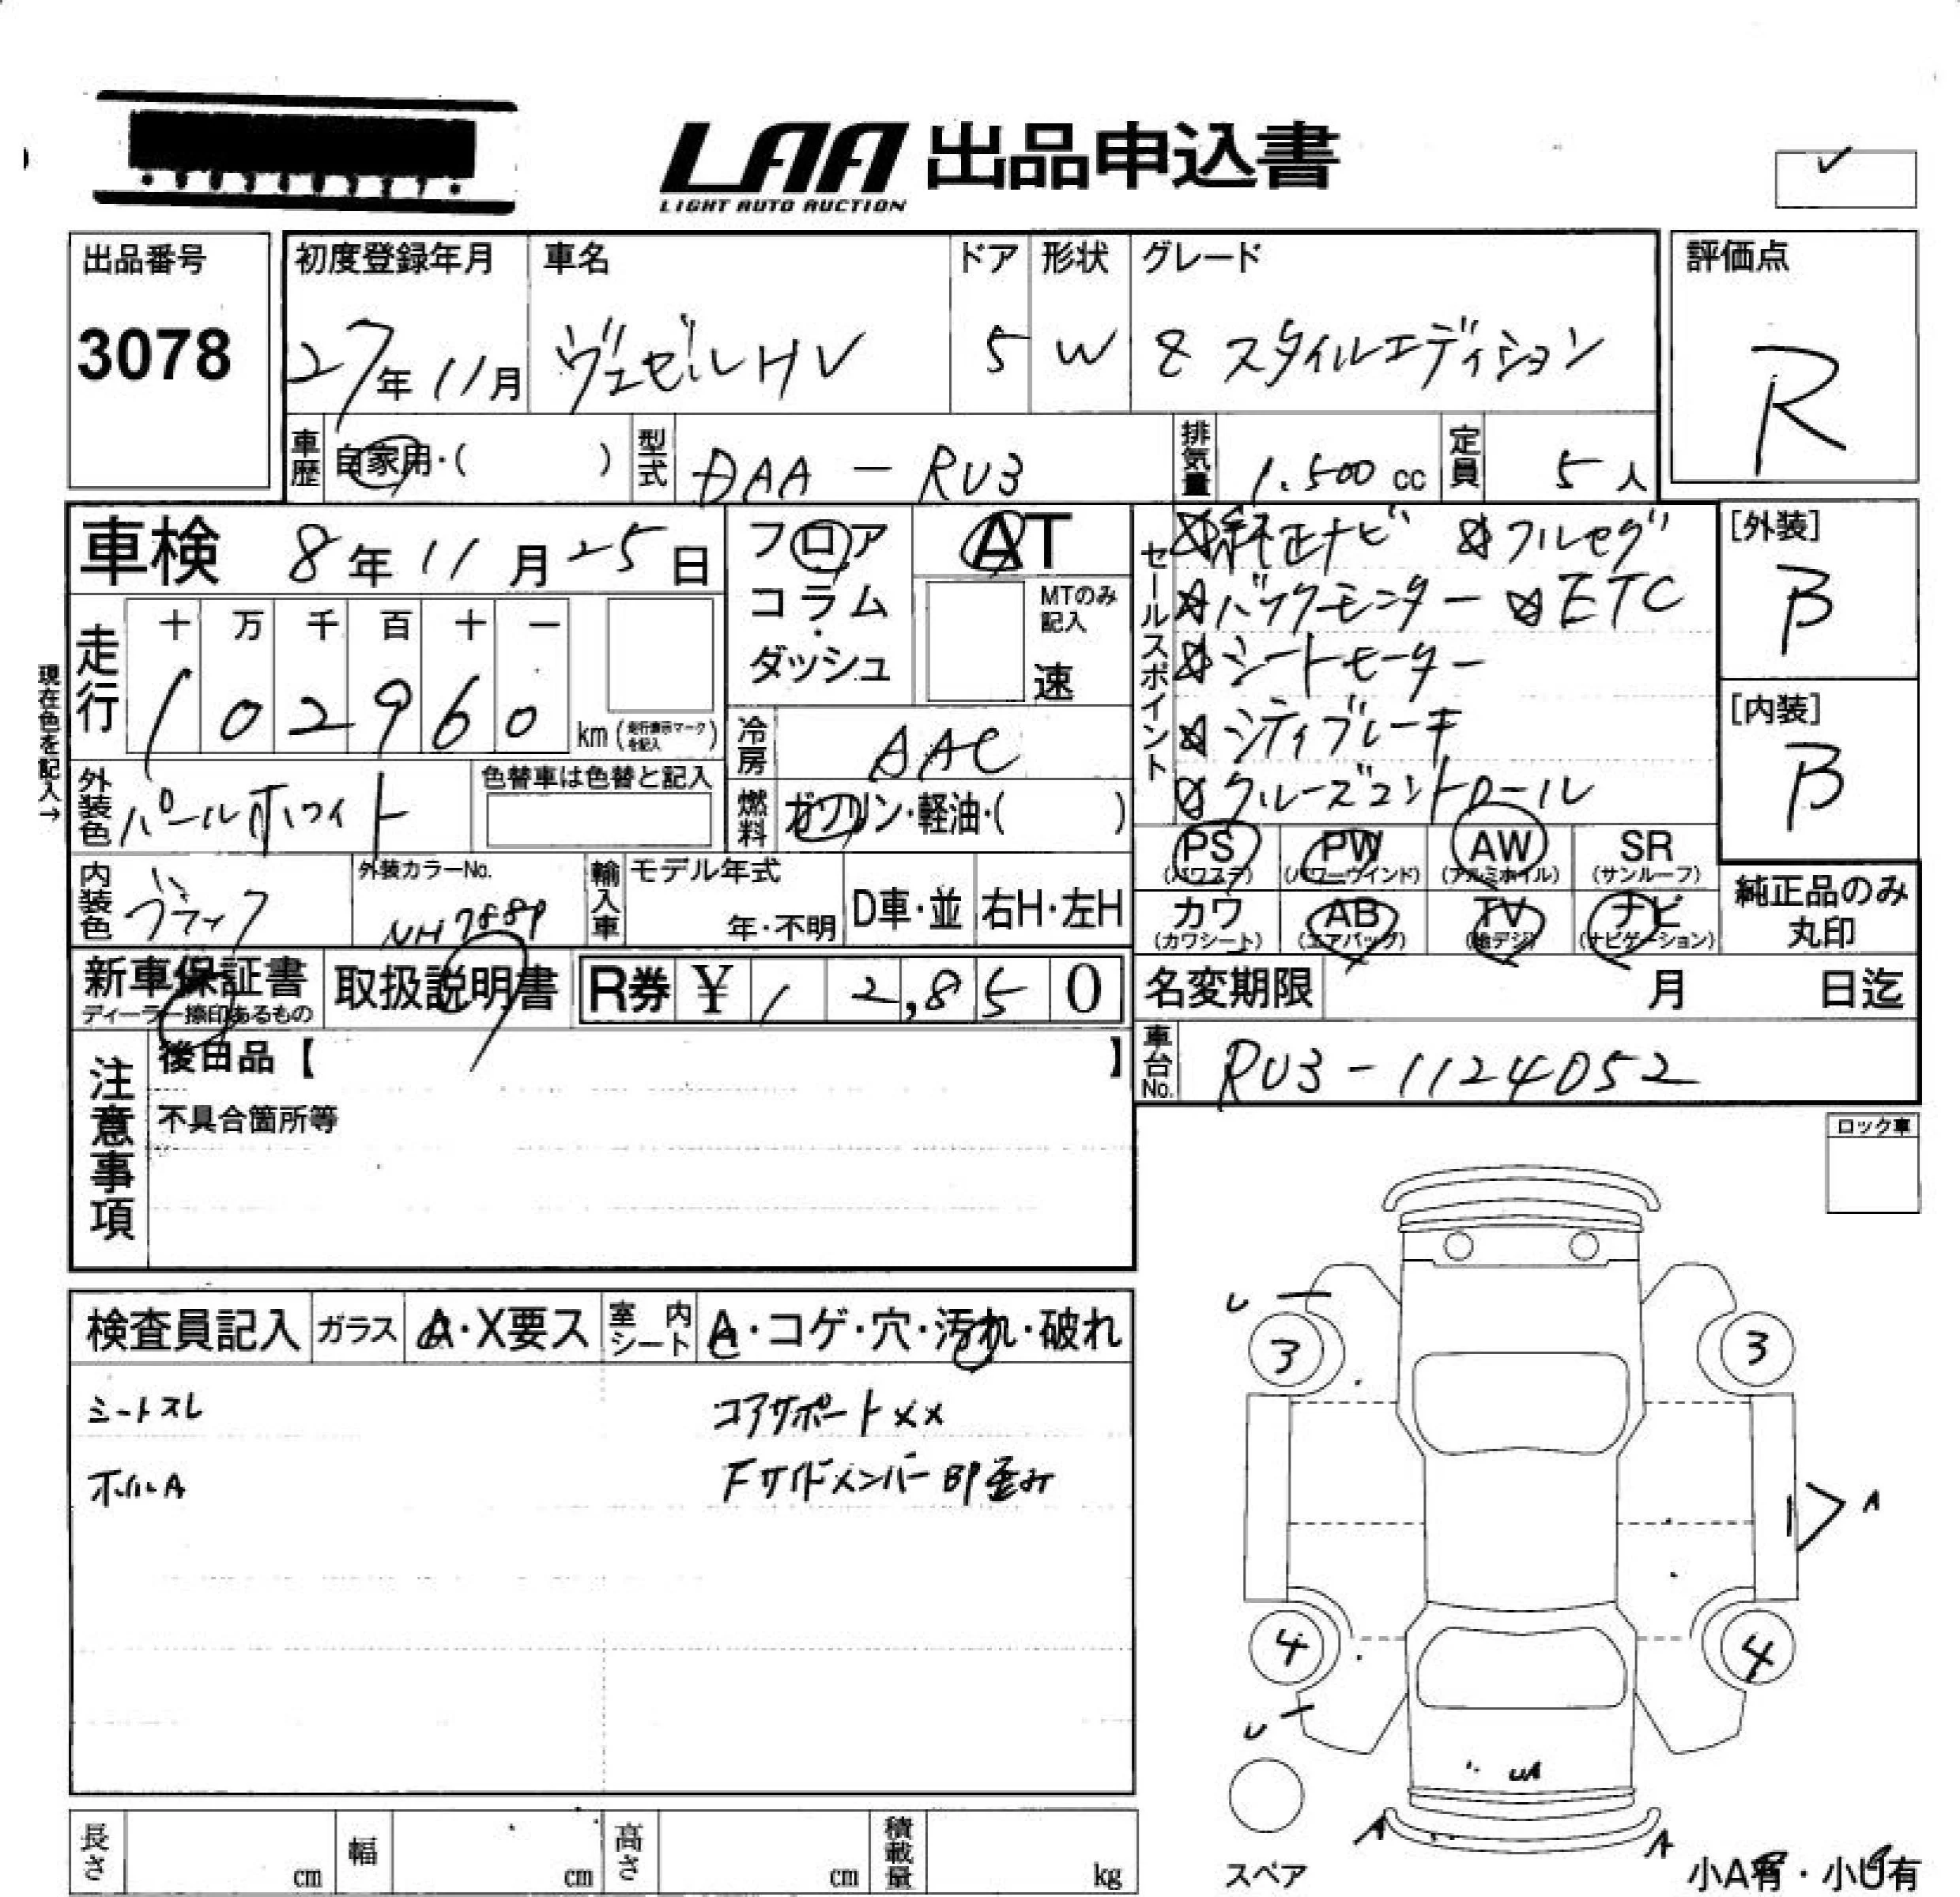 LAA 出品申込書
LIGHT AUTO AUCTION
✓
出品番号 初度登録年月 車名 ドア 形状 グレード 評価点
3078 27年11月 ヴェゼルHV 5 W 8 スタイルエディション R
車歴 自家用・( ) 型式 DAA-RU3 排気量 1.500cc 定員 5人
車検 8年11月25日
フロア
コラム
・
ダッシュ
AT
MTのみ
記入
速
セールスポイント
☆純正ナビ ☆フルセグ
☆バックモニター ☆ETC
☆シートモーター
☆シティブレーキ
☆クルーズコントロール
[外装]
B
[内装]
B
現在色を記入→
走行 十 万 千 百 十 一
1 0 2 9 6 0 km (走行表示マークを記入)
冷房 AAC
外装色 パールホワイト 色替車は色替と記入
燃料 ガソリン・軽油・( )
PS PW AW SR
(パワステ) (パワーウインド) (アルミホイル) (サンルーフ)
カワ AB TV ナビ
(カワシート) (エアバック) (地デジ) (ナビゲーション)
純正品のみ
丸印
内装色 ブラック 外装カラーNo. NH788P 輸入車 モデル年式 年・不明 D車・並 右H・左H
新車保証書 取扱説明書 R券 ¥ 1 2,8 5 0 名変期限 月 日迄
ディーラー捺印あるもの
車台No. RU3-1124052
注意事項
後日品【 】
不具合箇所等
ロック車
検査員記入 ガラス A・X要ス 室内シート A・コゲ・穴・汚れ・破れ
シートスレ コアサポートXX
ホイルA Fサイドメンバー BP歪み
U
3 3
A
4 4
U
UA
A A
スペア
小A有・小U有
長さ cm 幅 cm 高さ cm 積載量 kg